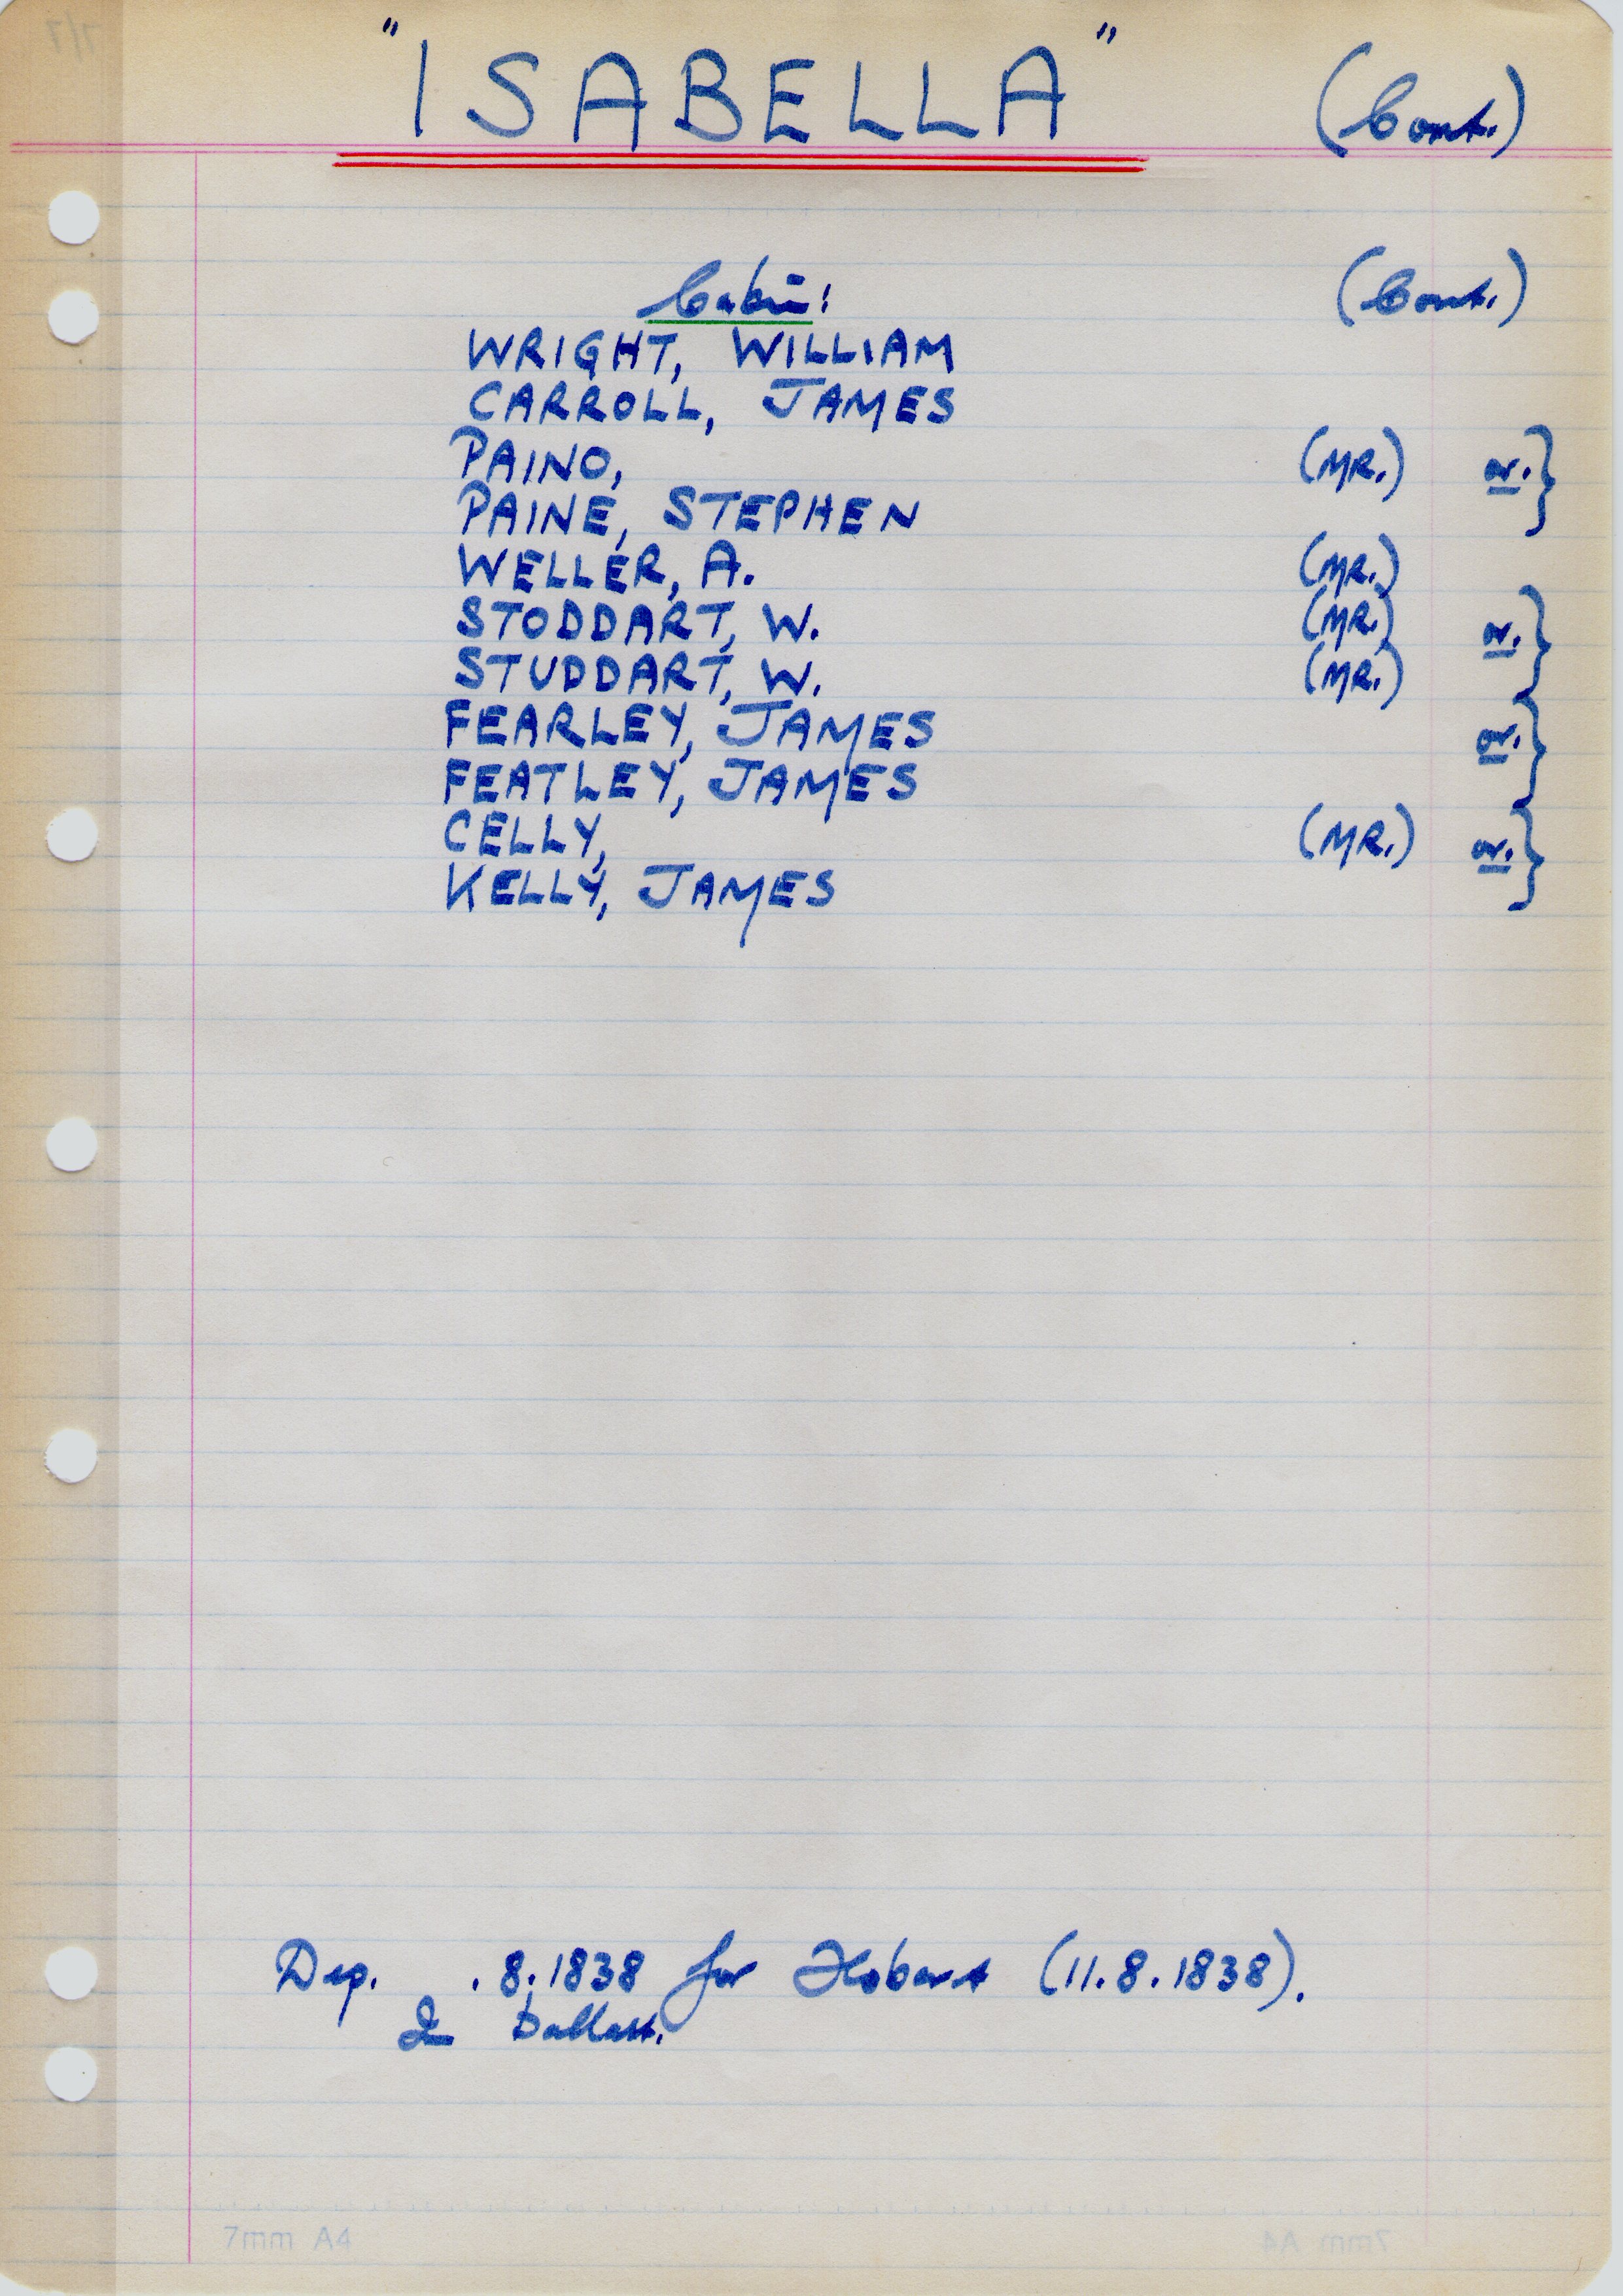 "ISABELLA" (Cont.)
Cabin: (Cont.)
WRIGHT, WILLIAM
CARROLL, JAMES
PAINO, (MR.) or.}
PAINE, STEPHEN
WELLER, A. (MR.)
STODDART, W. (MR.) or.}
STUDDART, W. (MR.)
FEARLEY, JAMES or.}
FEATLEY, JAMES
CELLY, (MR.) or.}
KELLY, JAMES
Dep. .8.1838 for Hobart (11.8.1838).
In ballast.
7mm A4